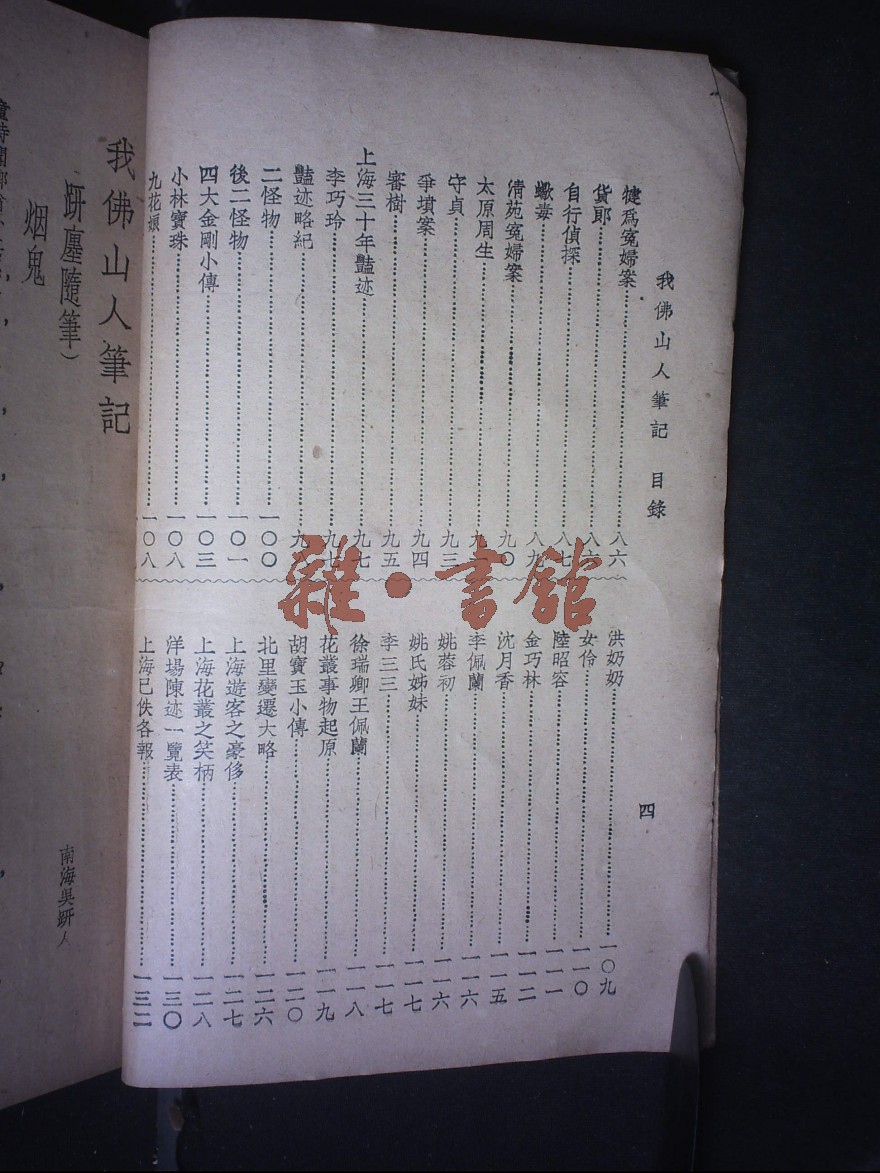 我佛山人筆記 目錄
四
犍爲寃婦案 八六
貨郎 八六
自行偵探 八七
蠍毒 八九
淸苑寃婦案 九〇
太原周生
守貞 九三
爭墳案 九四
審樹 九五
上海三十年豔迹 九七
李巧玲 九七
豔迹略紀 九八
二怪物 一〇〇
後二怪物 一〇一
四大金剛小傳 一〇三
小林寶珠 一〇八
九花娘 一〇八
洪奶奶 一〇九
女伶 一一〇
陸昭容 一一一
金巧林 一一二
沈月香 一一五
李佩蘭 一一六
姚蓉初 一一六
姚氏姊妹 一一七
李三三 一一七
徐瑞卿王佩蘭 一一八
花叢事物起原 一一九
胡寶玉小傳 一二〇
北里變遷大略 一二六
上海遊客之豪侈 一二七
上海花叢之笑柄 一二八
洋場陳迹一覽表 一三〇
上海已佚各報 一三二
雜·書館
我佛山人筆記
趼廛隨筆）
南海吳趼人
烟鬼